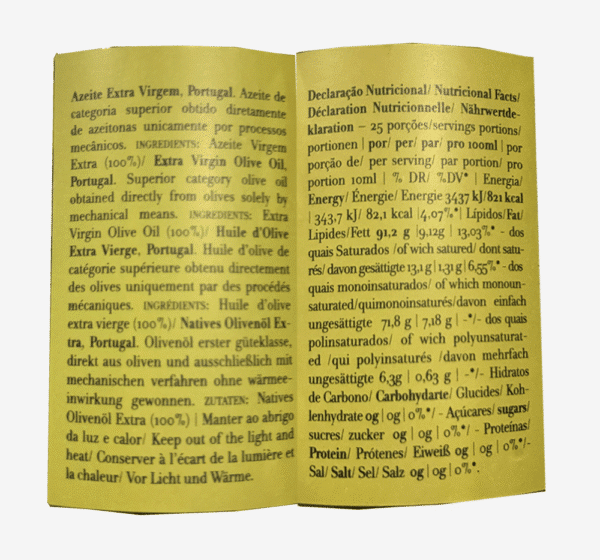 Azeite Extra Virgem, Portugal. Azeite de
categoria superior obtido diretamente
de azeitonas unicamente por processos
mecânicos. INGREDIENTS: Azeite Virgem
Extra (100%)/ Extra Virgin Olive Oil,
Portugal. Superior category olive oil
obtained directly from olives solely by
mechanical means. INGREDIENTS: Extra
Virgin Olive Oil (100%)/ Huile d'Olive
Extra Vierge, Portugal. Huile d'olive de
catégorie supérieure obtenu directement
des olives uniquement par des procédés
mécaniques. INGRÉDIENTS: Huile d'olive
extra vierge (100%)/ Natives Olivenöl Ex-
tra, Portugal. Olivenöl erster güteklasse,
direkt aus oliven und ausschließlich mit
mechanischen verfahren ohne wärmee-
inwirkung gewonnen. ZUTATEN: Natives
Olivenöl Extra (100%) | Manter ao abrigo
da luz e calor/ Keep out of the light and
heat/ Conserver à l'écart de la lumière et
la chaleur/ Vor Licht und Wärme.
Declaração Nutricional/ Nutricional Facts/
Déclaration Nutricionnelle/ Nährwertde-
klaration – 25 porções/servings portions/
portionen | por/ per/ par/ pro 100ml | por
porção de/ per serving/ par portion/ pro
portion 10ml | % DR/ %DV* | Energia/
Energy/ Énergie/ Energie 3437 kJ/821 kcal
| 343,7 kJ/ 82,1 kcal |4.07%*| Lípidos/Fat/
Lipides/Fett 91,2 g |9,12g | 13,03%* - dos
quais Saturados /of wich satured/ dont satu-
rés/ davon gesättigte 13,1 g | 1,31 g | 6,55%* - dos
quais monoinsaturados/ of which monoun-
saturated/quimonoinsaturés/davon einfach
ungesättigte 71,8 g | 7,18 g | -*/- dos quais
polinsaturados/ of wich polyunsaturat-
ed /qui polyinsaturés /davon mehrfach
ungesättigte 6,3g | 0,63 g | -*/- Hidratos
de Carbono/ Carbohydarte/ Glucides/ Koh-
lenhydrate 0g | 0g | 0%*/ - Açúcares/ sugars/
sucres/ zucker 0g | 0g | 0%*/ - Proteínas/
Protein/ Prótenes/ Eiweiß 0g | 0g | 0%*/-
Sal/ Salt/ Sel/ Salz 0g | 0g | 0%*.